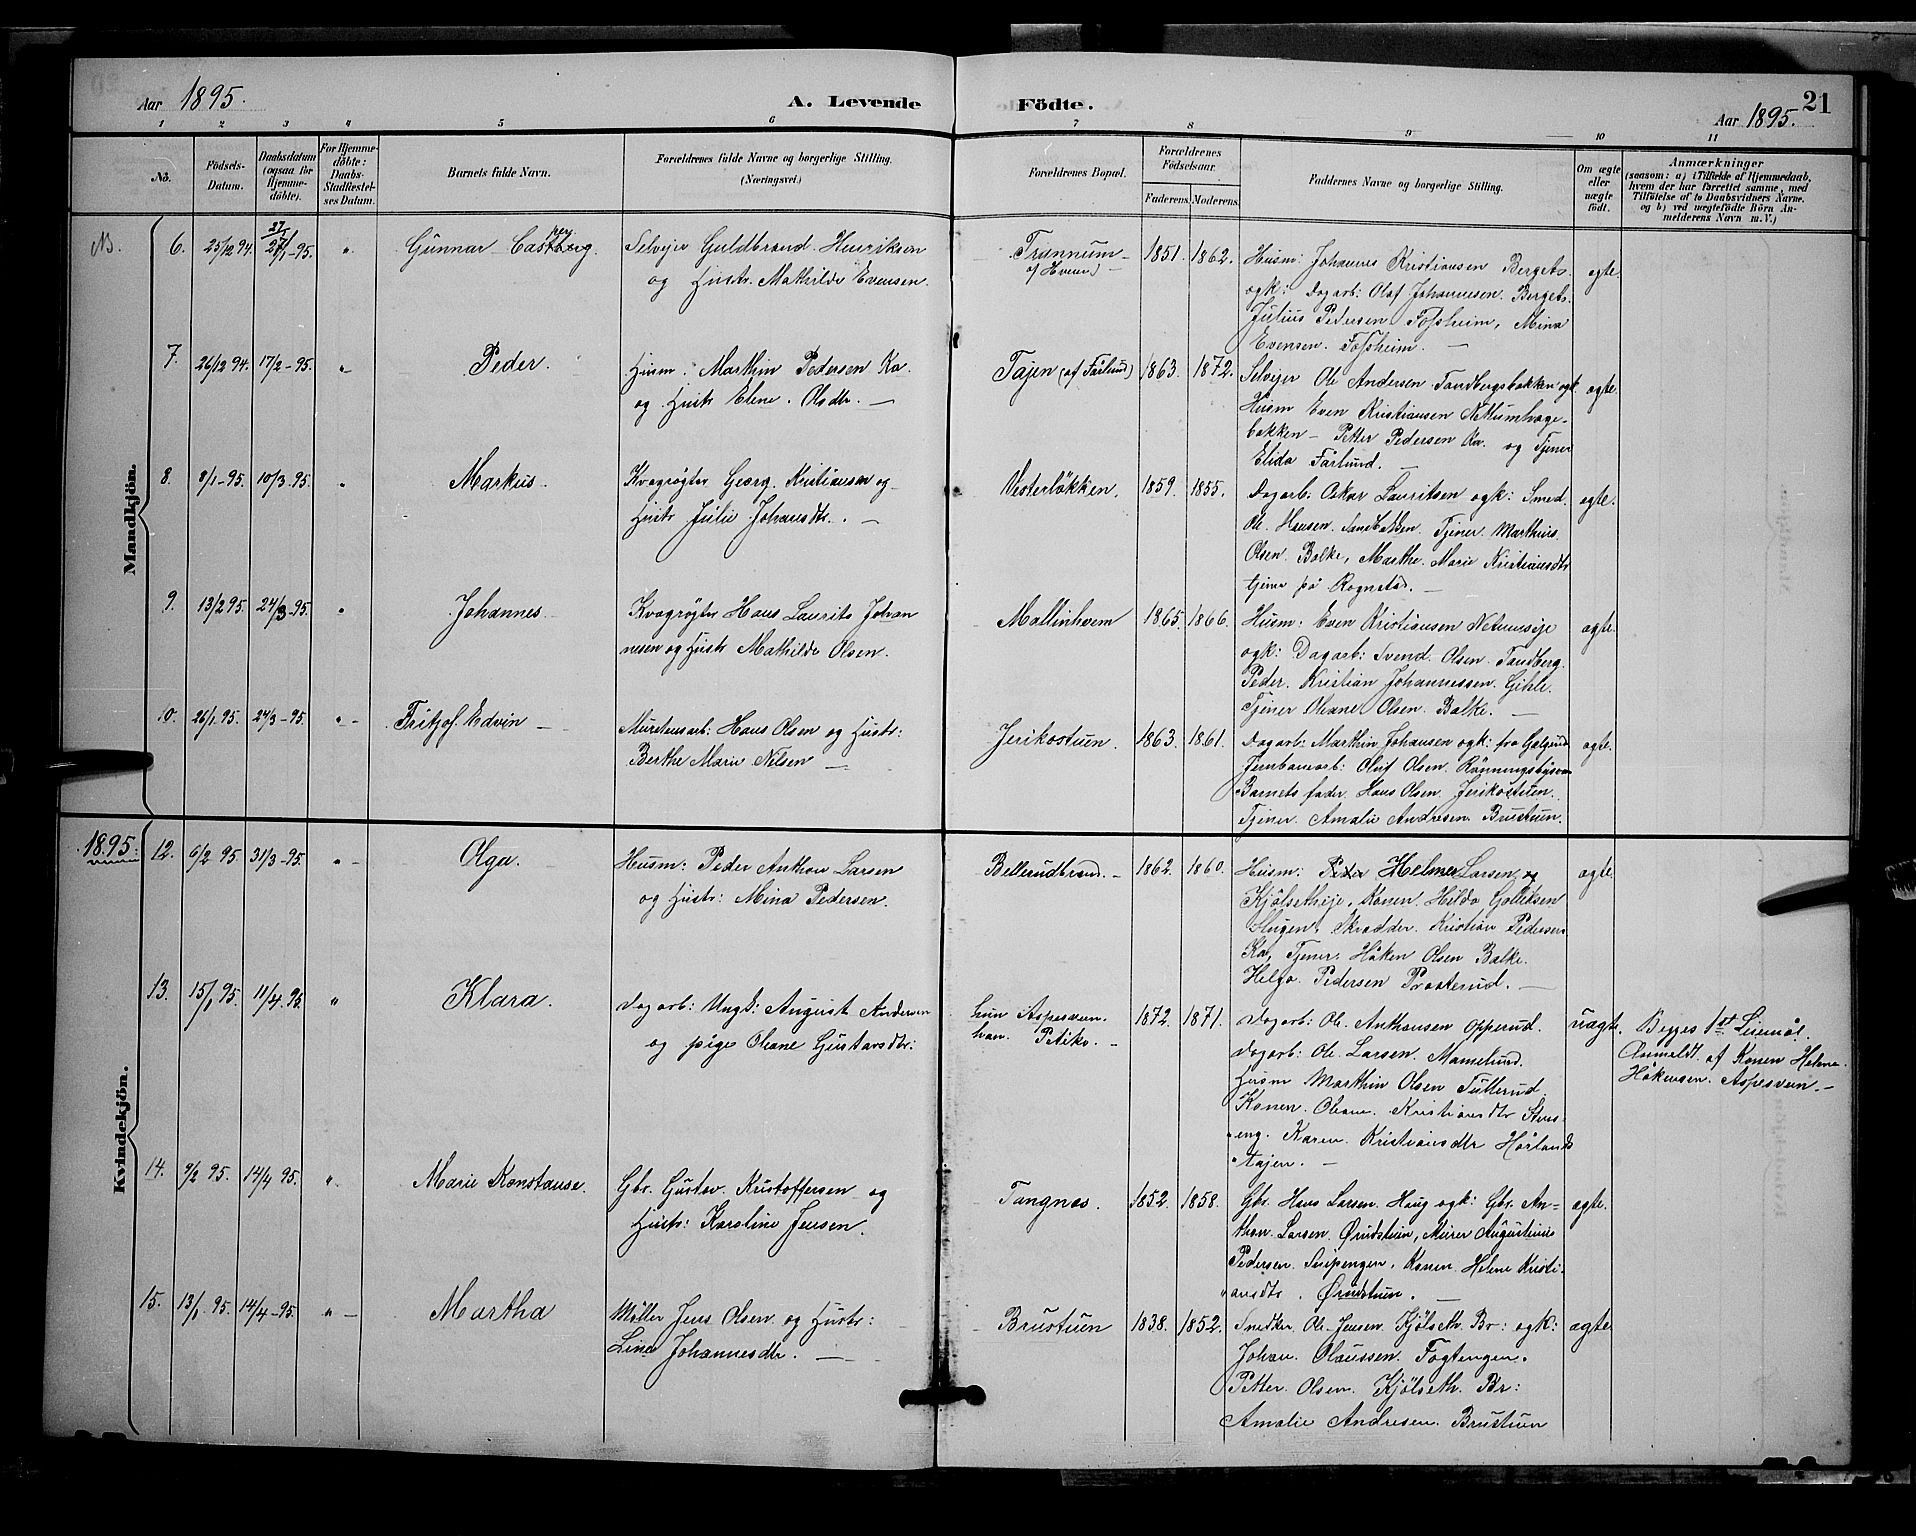 Aar 1895.
A. Levende
Födte.
Aar 1895.
21
1 2 3 4 5 6 7 8 9 10 11
No.
Födsels-
Datum.
Daabsdatum
(ogsaa for
Hjemme-
döbte).
For Hjemme-
döbte:
Daabs-
Stadfæstel-
ses Datum.
Barnets fulde Navn.
Forældrenes fulde Navne og borgerlige Stilling.
(Næringsvei.)
Forældrenes Bopæl.
Forældrenes
Födselsaar.
Faderens. Moderens.
Faddernes Navne og borgerlige Stilling.
Om ægte
eller
uægte
födt.
Anmærkninger
(saasom: a) i Tilfælde af Hjemmedaab,
hvem der har forrettet samme, med
Tilföielse af to Daabsvidners Navne,
og b) ved uægtefödte Börn An-
melderens Navn m. V.)
Mandkjön.
6. 25/12 94. 27/1-95. "
Gunnar Castberg
Selvejer Guldbrand Henriksen
og Hustr. Mathilde Evensen.
Trannum
af Hveem)
1851. 1862.
Husm: Johannes Kristiansen Bergets.
ogk: Dagarb: Olaf Johannesen. Bergets.
Julius Pedersen Fossheim, Mina
Evensen. Fossheim. —
egte
7. 26/12 94. 17/2-95. "
Peder.
Husm. Marthin Pedersen Ka.
og Hustr Elene. Olsdtr. —
Tajen (af Fårlund)
1863. 1872.
Selvejer Ole Andersen Tandbergsbakken ogk.
Husm Even Kristiansen Netumhage-
bakken — Petter Pedersen Ka. og Tjener
Elida Fårlund. —
ægte.
8. 8/1-95. 10/3-95. "
Markus.
Kvægrøgter Georg Kristiansen og
Hustr Julie Johansdtr. —
Vesterløkken.
1859. 1855.
Dagarb: Oskar Lauritsen ogk: Smed.
Ole Hansen. Sandbakken. Tjener Marthius
Olsen Balke, Marthe Marie Kristiansdtr
tjene på Rognstad. —
ægte.
9. 13/2 95. 24/3-95. "
Johannes
Kvægrøgter Hans Laurits Johan
nesen og Hustr Mathilde Olsen.
Mallinhvem
1865. 1866.
Husm: Even Kristiansen Netumseje
ogk: Dagarb: Svend Olsen Tandberg.
Peder Kristian Johannessen. Gihle.
Tjener Oleane Olsen Balke. —
ægte.
10. 26/1 95. 24/3-95. "
Fritjof Edvin —
Murstensarb: Hans Olsen og Hustr:
Berthe Marie Nilsen —
Jerikostuen.
1863. 1861.
Dagarb: Marthin Johansen ogk: fra Galgund
Jernbanearb: Oluf Olsen. Rønningsbysven
Barnets fader Hans Olsen Jerikostuen.
Tjener Amalie Andresen Brustuen.
ægte.
1895.
Kvindekjön.
12. 6/2 95. 31/3-95. "
Olga.
Husm: Peder Anthon Larsen
og Hustr: Mina Pedersen.
Bellerudbraad. —
1862. 1860.
Husm: Peder Helmer Larsen, og
Kjølsetheje, Konen Hilda Gulliksen
Slugen, Skrædder Kristian Pedersen
Ka, Tjener Håken Olsen Balke.
Helga Pedersen Prosterud. —
ægte.
13. 15/1 95. 11/4 95. "
Klara.
Dagarb: Ungk: August Andersen
og pige Oleane Gustavsdtr:
hun Aspesveen.
han Petiko. —
1872. 1871.
Dagarb: Ole Anthonsen Opperud.
Dagarb: Ole Larsen. Mamelund.
Husm Marthin Olsen Tutterud
Konen. Oleane Kristiansdtr Stens-
eng. Karen Kristiansdtr Hørlands
tajen. —
uægte.
Begges 1ste Leiemål.
Anmeldt af Konen Helene
Håkensen. Aspesveen. —
14. 9/2 95. 14/4 95. "
Marie Konstanse.
Gbr. Gustav Kristoffersen og
Hustr: Karoline Jensen.
Tangnes.
1852. 1858.
Gbr. Hans Larsen Haug ogk: Gbr. An-
thon Larsen Ørudstuen, Murer Augustinus
Pedersen. Konen Helene Kristi-
ansdtr. Ørudstuen. —
ægte.
15. 13/1 95. 14/4-95. "
Martha
Møller Jens Olsen og Hustr:
Line Johannesdtr. —
Brustuen
1838. 1852.
Snedker Ole Jensen Kjølseth Br: ogk:
Johan Olaussen Fogtengen.
Petter Olsen Kjølseth Br:
Amalie Andresen. Brustuen
ægte